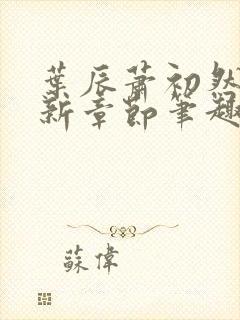 葉辰蕭初然
新章節筆趣
蘇偉